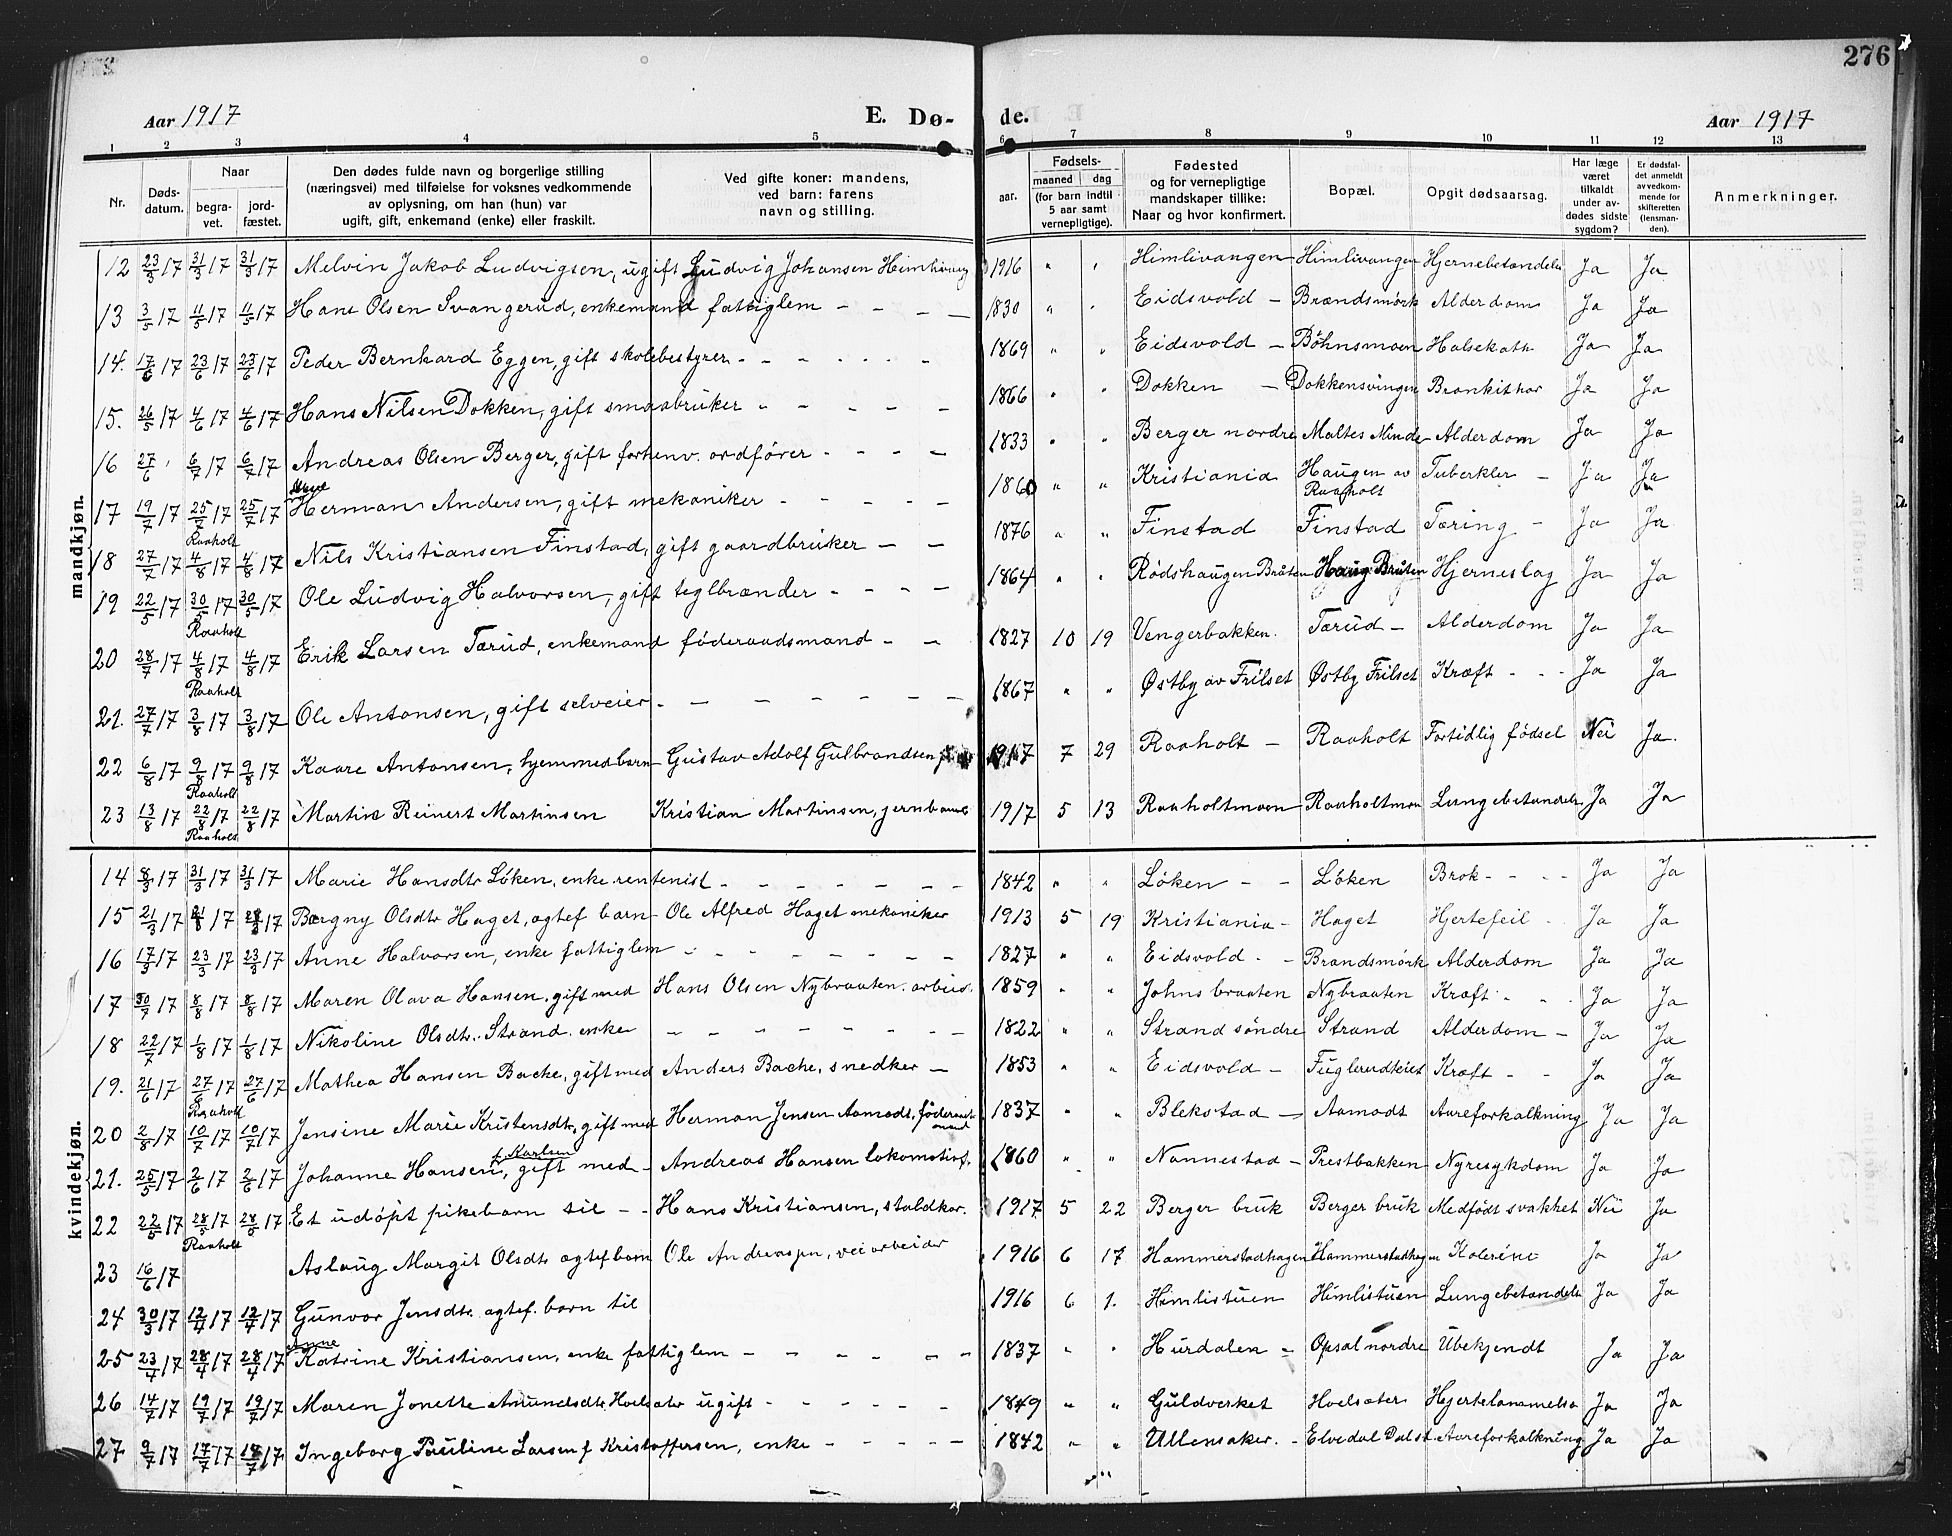 276
Aar 1917 E. Dø- de. Aar 1917
1 2 3 4 5 6 7 8 9 10 11 12 13
Nr. Døds-datum. Naar begra-vet. jord-fæstet. Den dødes fulde navn og borgerlige stilling (næringsvei) med tilføielse for voksnes vedkommende av oplysning, om han (hun) var ugift, gift, enkemand (enke) eller fraskilt. Ved gifte koner: mandens, ved barn: farens navn og stilling. Fødsels- aar. maaned dag (for barn indtil 5 aar samt vernepligtige). Fødested og for vernepligtige mandskaper tillike: Naar og hvor konfirmert. Bopæl. Opgit dødsaarsag. Har læge været tilkaldt under av-dødes sidste sygdom? Er dødsfal-det anmeldt av vedkom-mende for skifteretten (lensman-den). Anmerkninger.
mandkjøn.
12 23/3 17 31/3 17 31/3 17 Melvin Jakob Ludvigsen, ugift Ludvig Johansen 1916 " " Himlivangen Himlivangen Hjernebetændelse Ja Ja
13 3/5 17 11/5 17 11/5 17 Hans Olsen Svangerud, enkemand fattiglem – – – – 1830 " " Eidsvold – Brændsmørk Alderdom Ja Ja
14. 17/6 17 23/6 17 23/6 17 Peder Bernhard Eggen, gift skolebestyrer – – – – – – 1869 " " Eidsvold – Bøhnsmoen Halsekath Ja Ja
15. 26/5 17 4/6 17 4/6 17 Hans Nilsen Dokken, gift smaabruker – – – – – 1866 " " Dokken – Dokkensvingen Bronkithar Ja Ja
16 27/6 ' 6/7 17 6/7 17 Andreas Olsen Berger, gift forhenv. ordfører – – – – 1833 " " Berger nordre Maltes Minde Alderdom Ja Ja
17 19/7 17 25/7 17 Raaholt 25/7 17 Herman Andersen, gift mekaniker – – – – – 1860 " " Kristiania Haugen av Raaholt Tuberkler – Ja Ja
18 27/7 17 4/8 17 4/8 17 Nils Kristiansen Finstad, gift gaardbruker – – 1876 " " Finstad Finstad Tæring – Ja Ja
19 22/5 17 30/5 17 Raaholt 30/5 17 Ole Ludvig Halvorsen, gift teglbrænder – – – – 1864 " " Rødshaugen Bråten Haug Bråten Hjerneslag Ja Ja
20 28/7 17 4/8 17 Raaholt 4/8 17 Erik Larsen Tærud, enkemand føderaadsmand – – 1827 10 19 Vengerbakken. Tærud – Alderdom Ja Ja
21. 27/7 17 3/8 17 3/8 17 Ole Antonsen, gift selveier – – – – – – 1867 " " Østby av Frilset Østby Frilset Kræft – – – Ja Ja
22 6/8 17 9/8 17 Raaholt 9/8 17 Kaare Antonsen, hjemmedbarn – Gustav Adolf Gulbrandsen 1917 7 29 Raaholt – Raaholt Fortidlig fødsel Nei Ja
23 13/8 17 22/8 17 Raaholt 22/8 17 Martin Reinert Martinsen Kristian Martinsen, 1917 5 13 Raaholtmoen Raaholtmoen Lungebetændelse Ja Ja
kvindekjøn.
14 8/3 17 31/3 17 31/3 17 Marie Hansdtr Løken, enke rentenist – – – – – – 1842 " " Løken – – Løken Brok – – – – Ja Ja
15 21/3 17 17 17 Borgny Olsdtr Haget, ægtef barn – Ole Alfred Haget mekaniker 1913 5 19 Kristiania – Haget Hjertefeil – Ja Ja
16 17/3 17 23/3 17 23/3 17 Anne Halvorsen, enke fattiglem – – – – – – – 1827 " " Eidsvold – – Brændsmørk Alderdom Ja Ja
17 30/7 17 8/8 17 8/8 17 Maren Olava Hansen, gift med Hans Olsen Nybraaten. 1859 " " Johnsbraaten Nybraaten Kræft – – – Ja Ja
18 22/7 17 1/8 17 1/8 17 Nikoline Olsdtr. Strand. enke – – – – – – – 1822 " " Strand søndre Strand Alderdom – Ja Ja
19. 21/6 17 27/6 17 Raaholt 27/6 17 Mathea Hansen Bache, gift med Anders Bache, snedker – 1853 " " Eidsvold – Fuglerudteiet Kræft – – Ja Ja
20 2/8 17 10/7 17 10/7 17 Jensine Marie Kristensdtr, gift med Herman Jensen Aamodt, føderaadsmand 1837 " " Blekstad – Aamodt Aareforkalkning Ja Ja
21. 25/5 17 2/6 17 2/6 17 Johanne Hansen, f. Karlsen gift med – Andreas Hansen lokomotivf. 1860 " " Nannestad – Prestbakken Nyresykdom Ja Ja
22 22/5 17 28/5 17 Raaholt 28/5 17 Et udøpt pikebarn til – – Hans Kristiansen, staldkar. 1917 5 22 Berger bruk Berger bruk Medfødt svakhet Nei Ja
23 16/6 17 Aslaug Margit Olsdtr ægtef barn Ole Andreasen, veiarbeider 1916 6 17 Hammerstadhagen Hammerstadhagen Kolerine Ja Ja
24 30/3 17 12/4 17 12/4 17 Gunvor Jensdtr. ægtef. barn til 1916 6 1. Himlistuen Himlistuen Lungebetændelse Ja Ja
25 23/4 17 28/4 17 28/4 17 Anne Katrine Kristiansen, enke fattiglem – – – – – – 1837 " " Hurdalen – Opsal nordre Ubekjendt Ja Ja
26 14/7 17 19/7 17 19/7 17 Maren Jonette Amundsdtr Hoelsæter ugift – – – – – 1849 " " Guldverket Hoelsæter Hjertelammelse Ja Ja
27 9/7 17 17/7 17 18/7 17 Ingeborg Pauline Larsen f Kristoffersen, enke – – – – – 1842 " " Ullensaker. – Elvedal Dalst Aareforkalkning Ja Ja